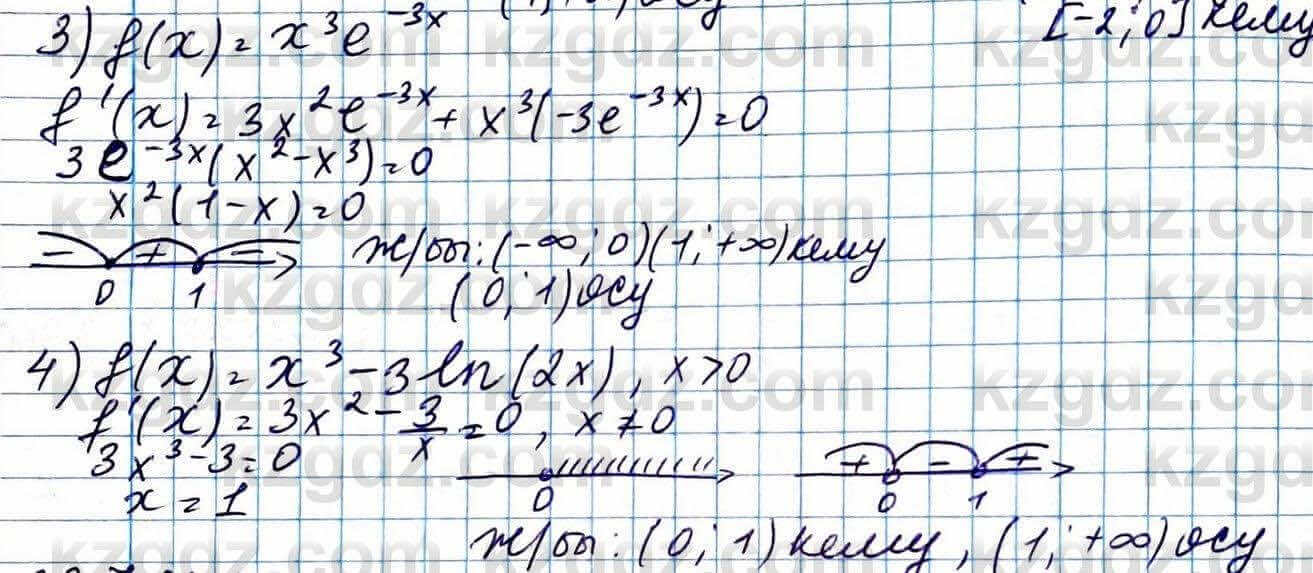 [-2; 0] кему
3) f(x) = x³e⁻³ˣ
f'(x) = 3x²e⁻³ˣ + x³(-3e⁻³ˣ) = 0
3e⁻³ˣ(x² - x³) = 0
x²(1 - x) = 0
- + -
0 1
Ж/бы: (-∞; 0)(1; +∞) кему
(0; 1) өсу
4) f(x) = x³ - 3 ln(2x), x > 0
f'(x) = 3x² - 3/x = 0, x ≠ 0
3x³ - 3 = 0
x = 1
0
+ - +
0 1
Ж/бы: (0; 1) кему, (1; +∞) өсу
kzgdz.com